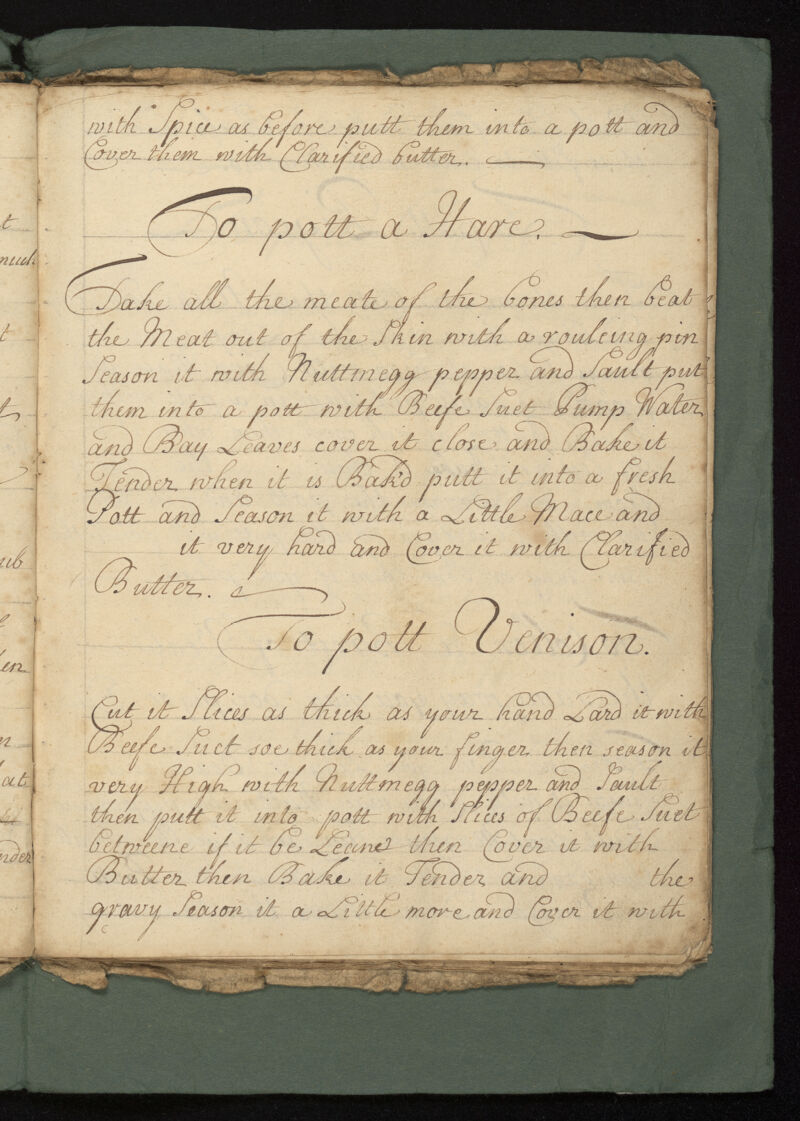 with Spice as before putt them into a pott and
Cover them with Clarified butter.
To pott a Hare.
Take all the meate of the bones then beat
the Meat out of the Skin with a rouleing pin
Season it with Nuttmegg pepper and Sault put
them into a pott with Beefe Suet Pump Water
and Bay Leaves cover it close and Bake it
Tender when it is Bak'd putt it into a fresh
Pott and Season it with a Little Mace and
it very hard and Cover it with Clarified
Butter.
To pott Venison.
Cut it Slices as thick as your hand Lard it with
Beefe Suet soe thick as your finger then season it
very High with Nuttmegg pepper and Sault
then putt it into pott with Slices of Beefe Suet
betweene if it be Leane then Cover it with
Butter then Bake it Tender and the
gravy Season it a Little more and Cover it with
t
much
t
ub
en
n
at
nder